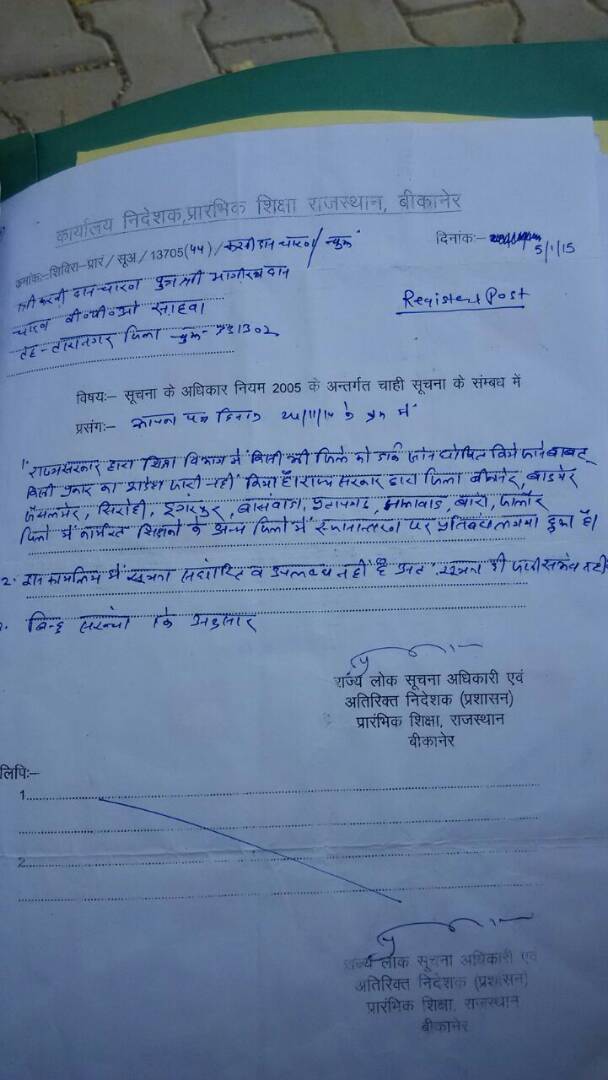 कार्यालय निदेशक,प्रारंभिक शिक्षा राजस्थान, बीकानेर
क्रमांकः-शिविरा-प्रार/सूअ/13705(44)/करणी दान चारण/चुरू
दिनांकः- 5/1/15
श्री करणी दान चारण पुत्र श्री भागीरथ दान
चारण साहवा
Registerd Post
तह-तारानगर जिला चुरू- 331302
विषयः- सूचना के अधिकार नियम 2005 के अन्तर्गत चाही सूचना के संबध में
प्रसंगः- आपका पत्र दिनांक 24/11/14 के क्रम में
राज्य सरकार द्वारा शिक्षा विभाग में किसी भी जिले को डार्क जोन घोषित किये जाने बाबत्
किसी प्रकार का आदेश जारी नही किया है। राज्य सरकार द्वारा जिला बीकानेर, बाडमेर
जैसलमेर, सिरोही, डूंगरपुर, बांसवाडा, प्रतापगढ, झालावाड, बारां, जालौर
जिलो में कार्यरत शिक्षको के अन्य जिलो में स्थानान्तरण पर प्रतिबंध लगाया हुआ है।
2. इस कार्यालय में सूचना संधारित व उपलब्ध नही है अतः सूचना दी जानी संभव नही
बिन्दु संख्या के अनुसार
राज्य लोक सूचना अधिकारी एवं
अतिरिक्त निदेशक (प्रशासन)
प्रारंभिक शिक्षा, राजस्थान
बीकानेर
लिपिः-
1
2
राज्य लोक सूचना अधिकारी एवं
अतिरिक्त निदेशक (प्रशासन)
प्रारंभिक शिक्षा, राजस्थान
बीकानेर